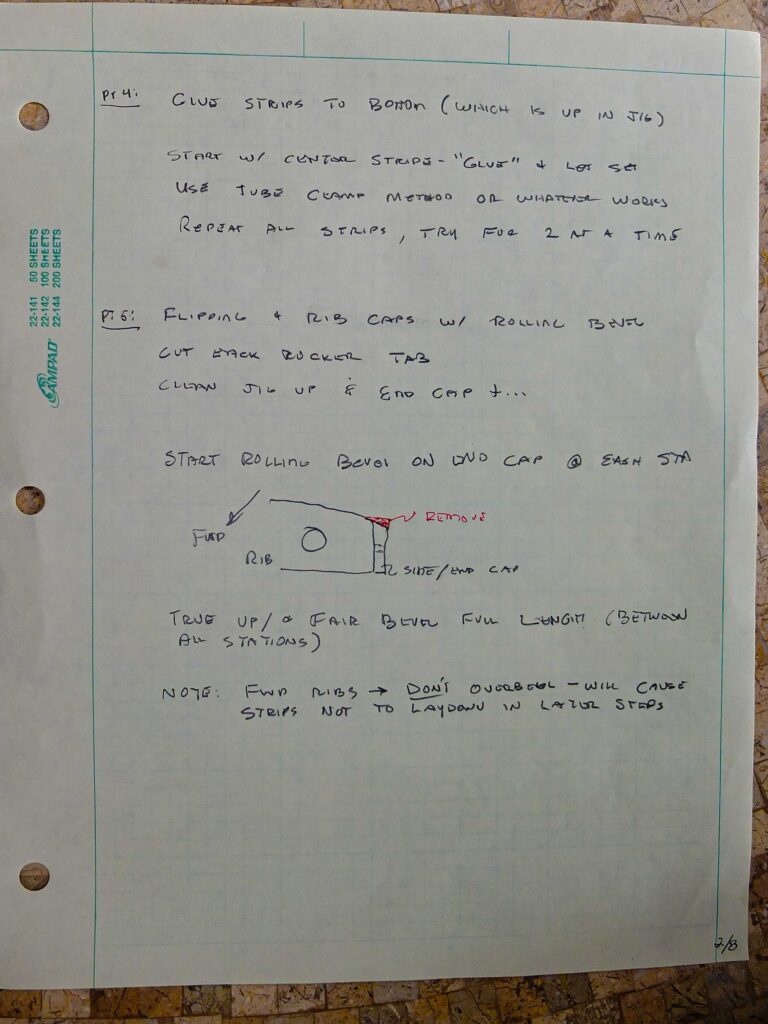 PT 4: GLUE STRIPS TO BOTTOM (WHICH IS UP IN JIG)
START W/ CENTER STRIPE - "GLUE" & LET SET
USE TUBE CLAMP METHOD OR WHATEVER WORKS
REPEAT ALL STRIPS, TRY FOR 2 AT A TIME
22-141 50 SHEETS
22-142 100 SHEETS
22-144 200 SHEETS
AMPAD
PT 5: FLIPPING & RIB CAPS W/ ROLLING BEVEL
CUT BACK ROCKER TAB
CLEAN JIG UP & END CAP +...
START ROLLING BEVEL ON END CAP @ EACH STA
REMOVE
FWD
RIB
SIDE/END CAP
TRUE UP/& FAIR BEVEL FULL LENGTH (BETWEEN
ALL STATIONS)
NOTE: FWD RIBS → DON'T OVERBEVEL - WILL CAUSE
STRIPS NOT TO LAYDOWN IN LATER STEPS
2/8